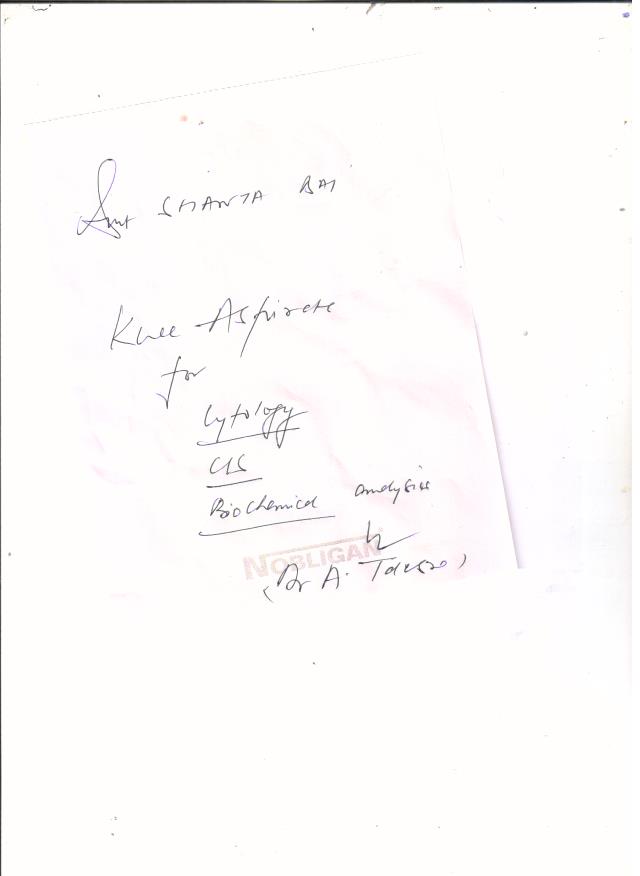 Smt SHANTA BAI
Knee Aspirate
for
Cytology
C/S
Biochemical analysis
NOBLIGAN
(Dr A.